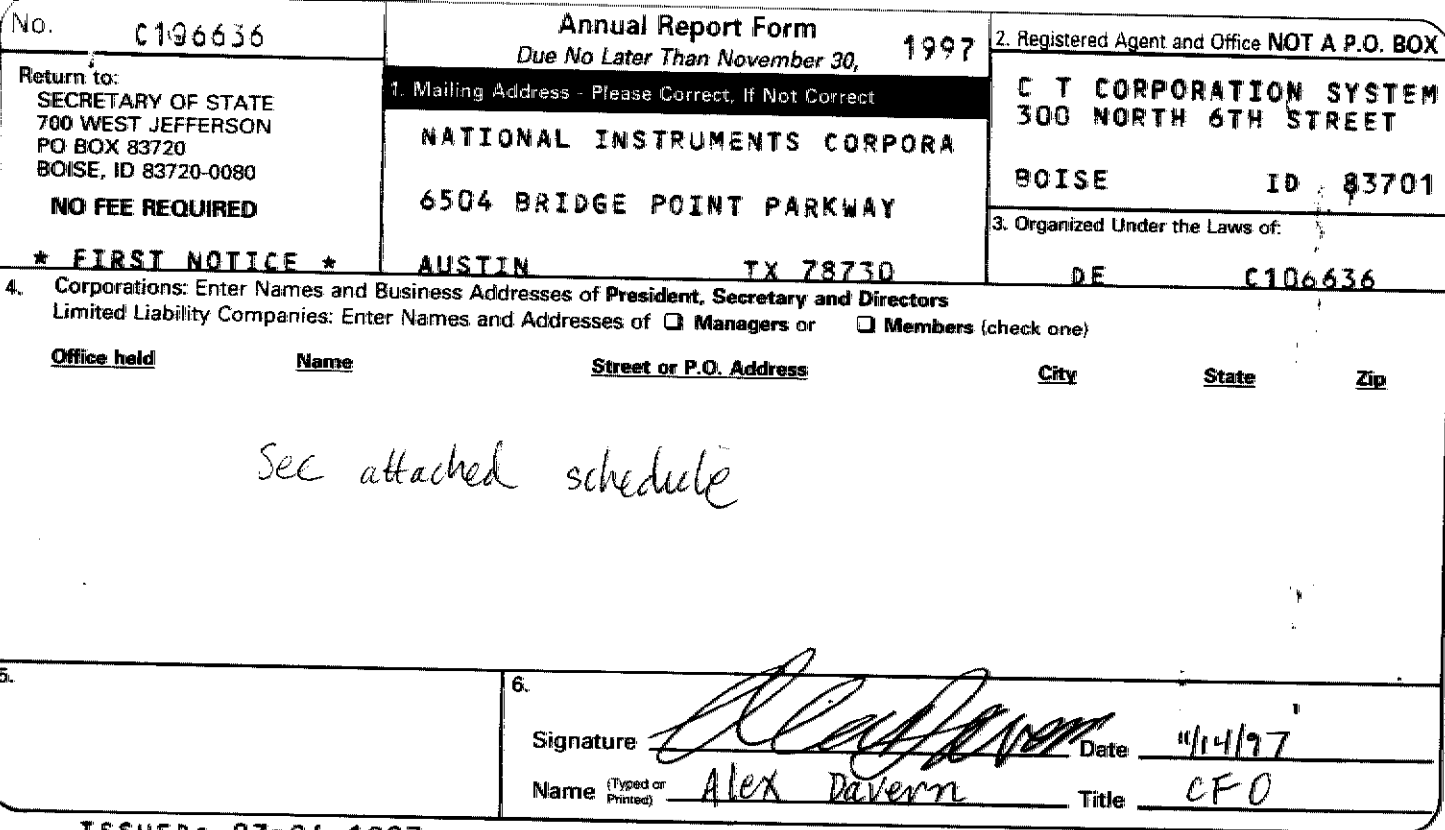 No. C106636
Return to:
SECRETARY OF STATE
700 WEST JEFFERSON
PO BOX 83720
BOISE, ID 83720-0080
NO FEE REQUIRED
* FIRST NOTICE *
Annual Report Form
Due No Later Than November 30, 1997
1. Mailing Address - Please Correct, If Not Correct
NATIONAL INSTRUMENTS CORPORA
6504 BRIDGE POINT PARKWAY
AUSTIN TX 78730
2. Registered Agent and Office NOT A P.O. BOX
C T CORPORATION SYSTEM
300 NORTH 6TH STREET
BOISE ID 83701
3. Organized Under the Laws of:
DE C106636
4. Corporations: Enter Names and Business Addresses of President, Secretary and Directors
Limited Liability Companies: Enter Names and Addresses of ❑ Managers or ❑ Members (check one)
Office held Name Street or P.O. Address City State Zip
See attached schedule
5.
6.
Signature Alex Davern Date 11/14/97
Name (Typed or Printed) Alex Davern Title CFO